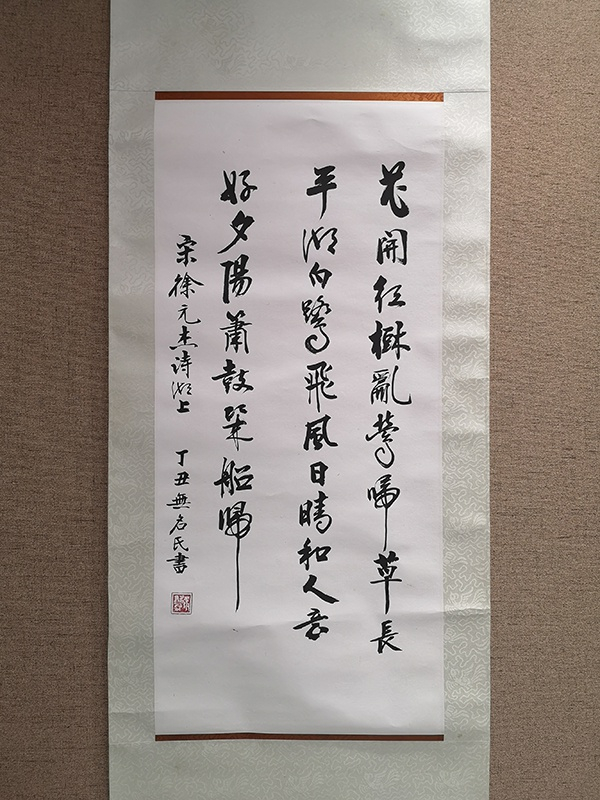 花開紅樹亂鶯啼草長
平湖白鷺飛風日晴和人意
好夕陽蕭鼓幾船歸
宋徐元杰詩湖上 丁丑無名氏書